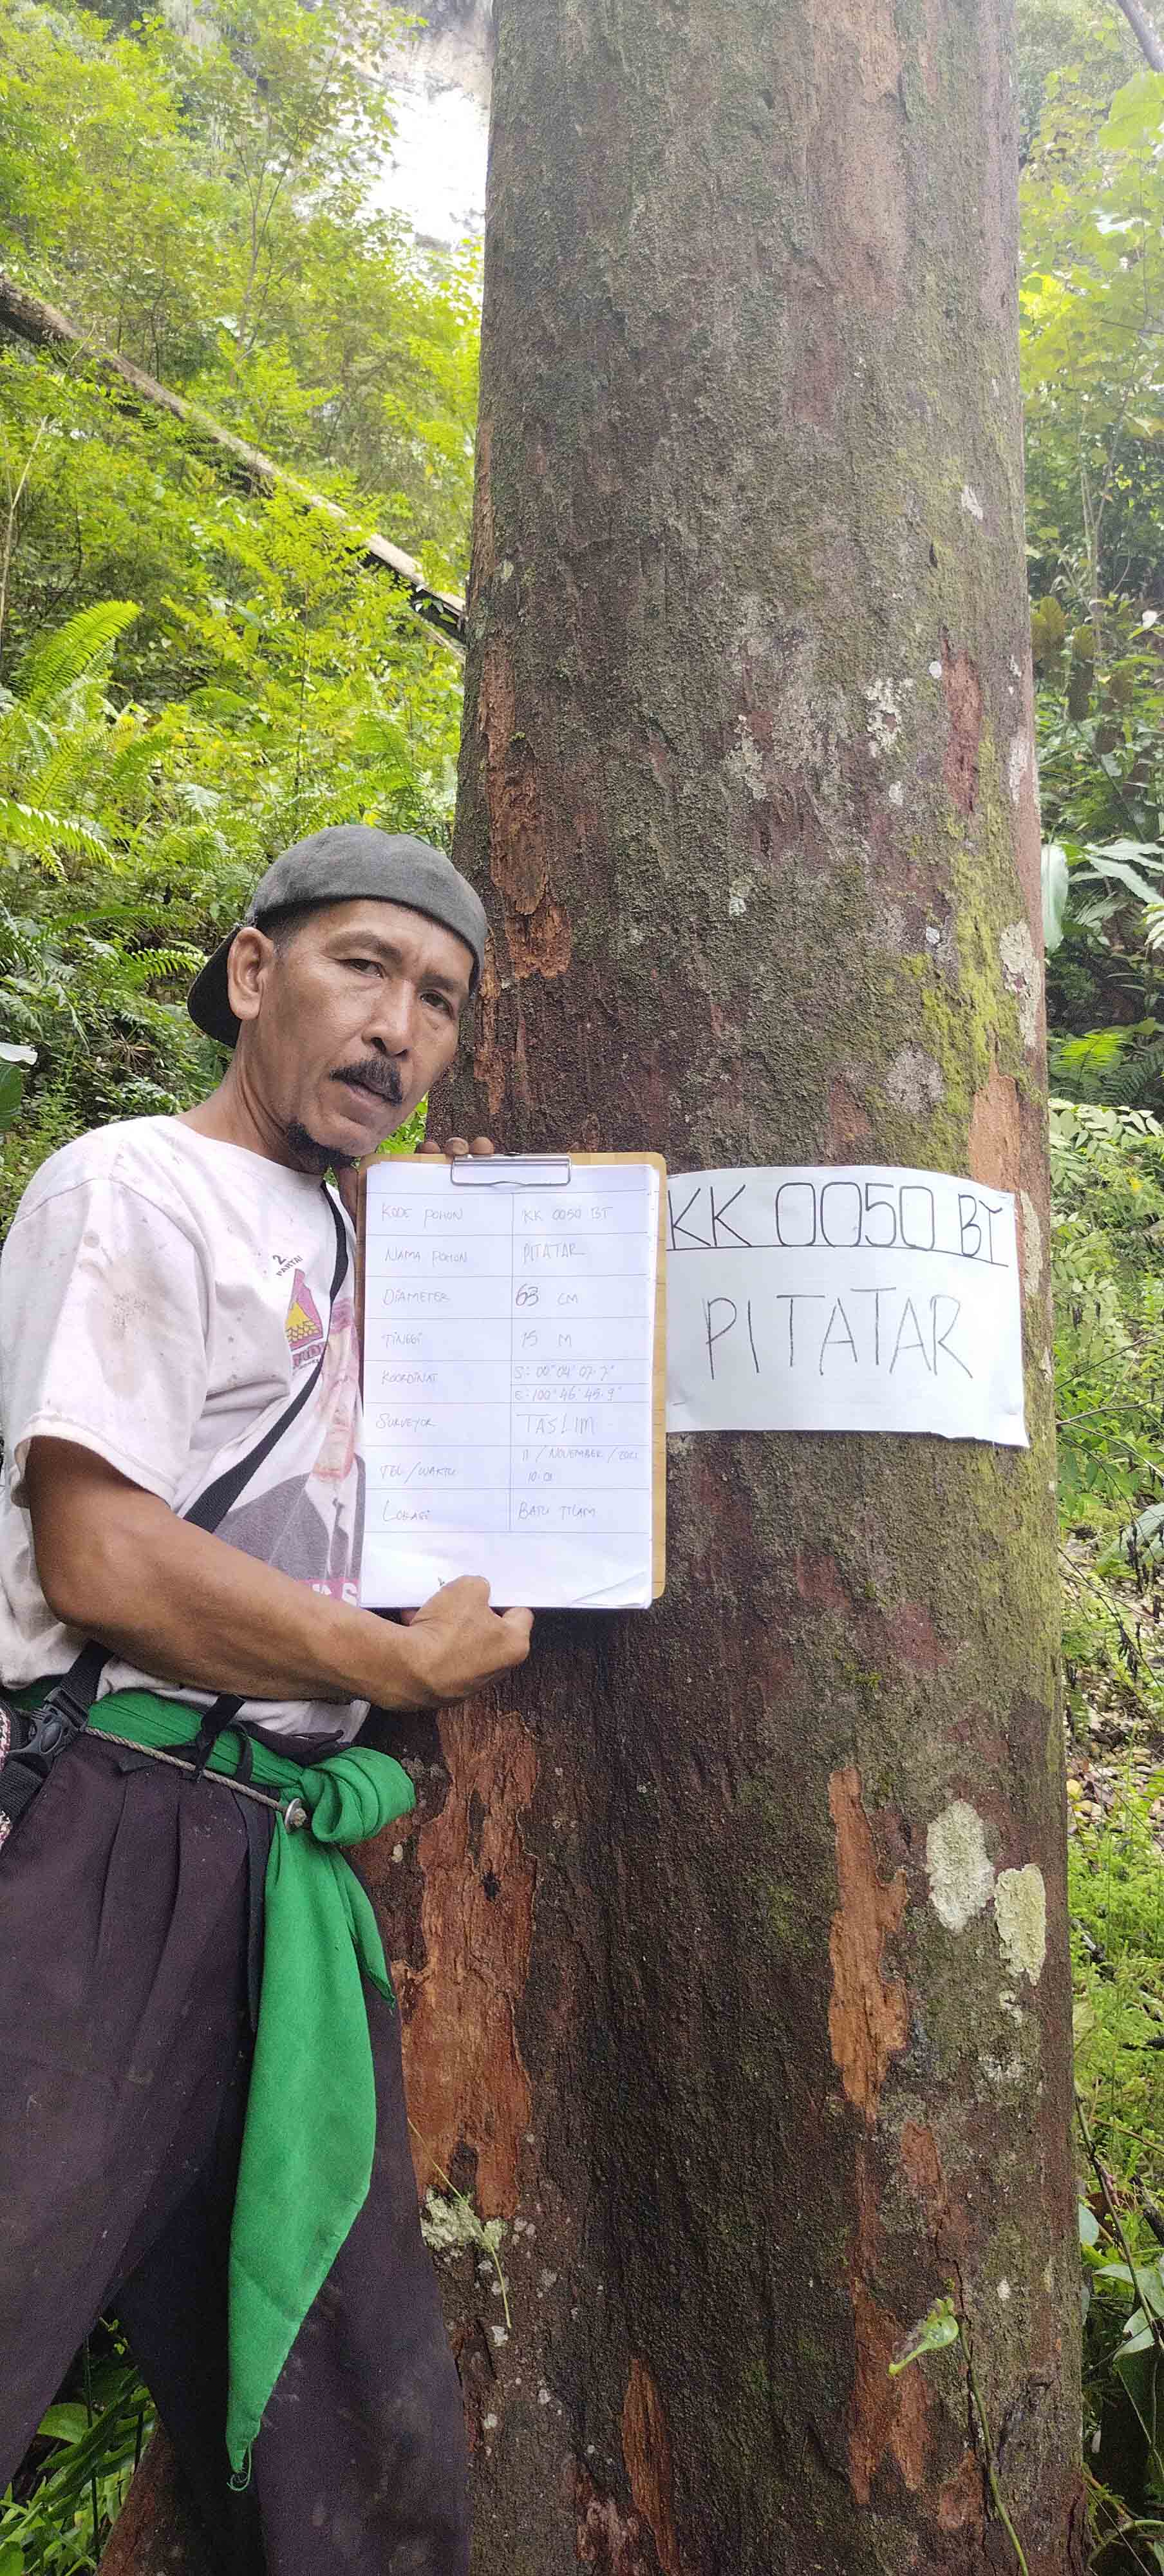 KODE POHON KK 0050 BT
NAMA POHON PITATAR
DIAMETER 63 CM
TINGGI 15 M
KOORDINAT S: 00° 04' 07.7"
E: 100° 46' 45.9"
SURVEYOR TASLIM
TGL/WAKTU 11 / NOVEMBER / 2021
10.01
LOKASI BATU TILAM
KK 0050 BT
PITATAR
2
PARTAI